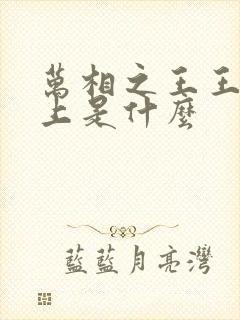 萬相之王王
上是什麼
藍藍月亮灣